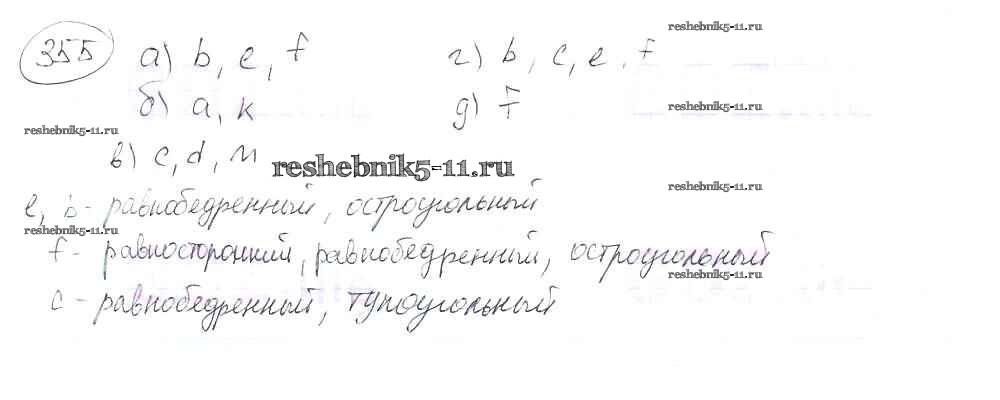 reshebnik5-11.ru
355 а) b, e, f г) b, c, e, f
б) a, k д) f
reshebnik5-11.ru
reshebnik5-11.ru
в) c, d, m
reshebnik5-11.ru
reshebnik5-11.ru
e, b - равнобедренный, остроугольный
reshebnik5-11.ru
f - равносторонний, равнобедренный, остроугольный
reshebnik5-11.ru
c - равнобедренный, тупоугольный